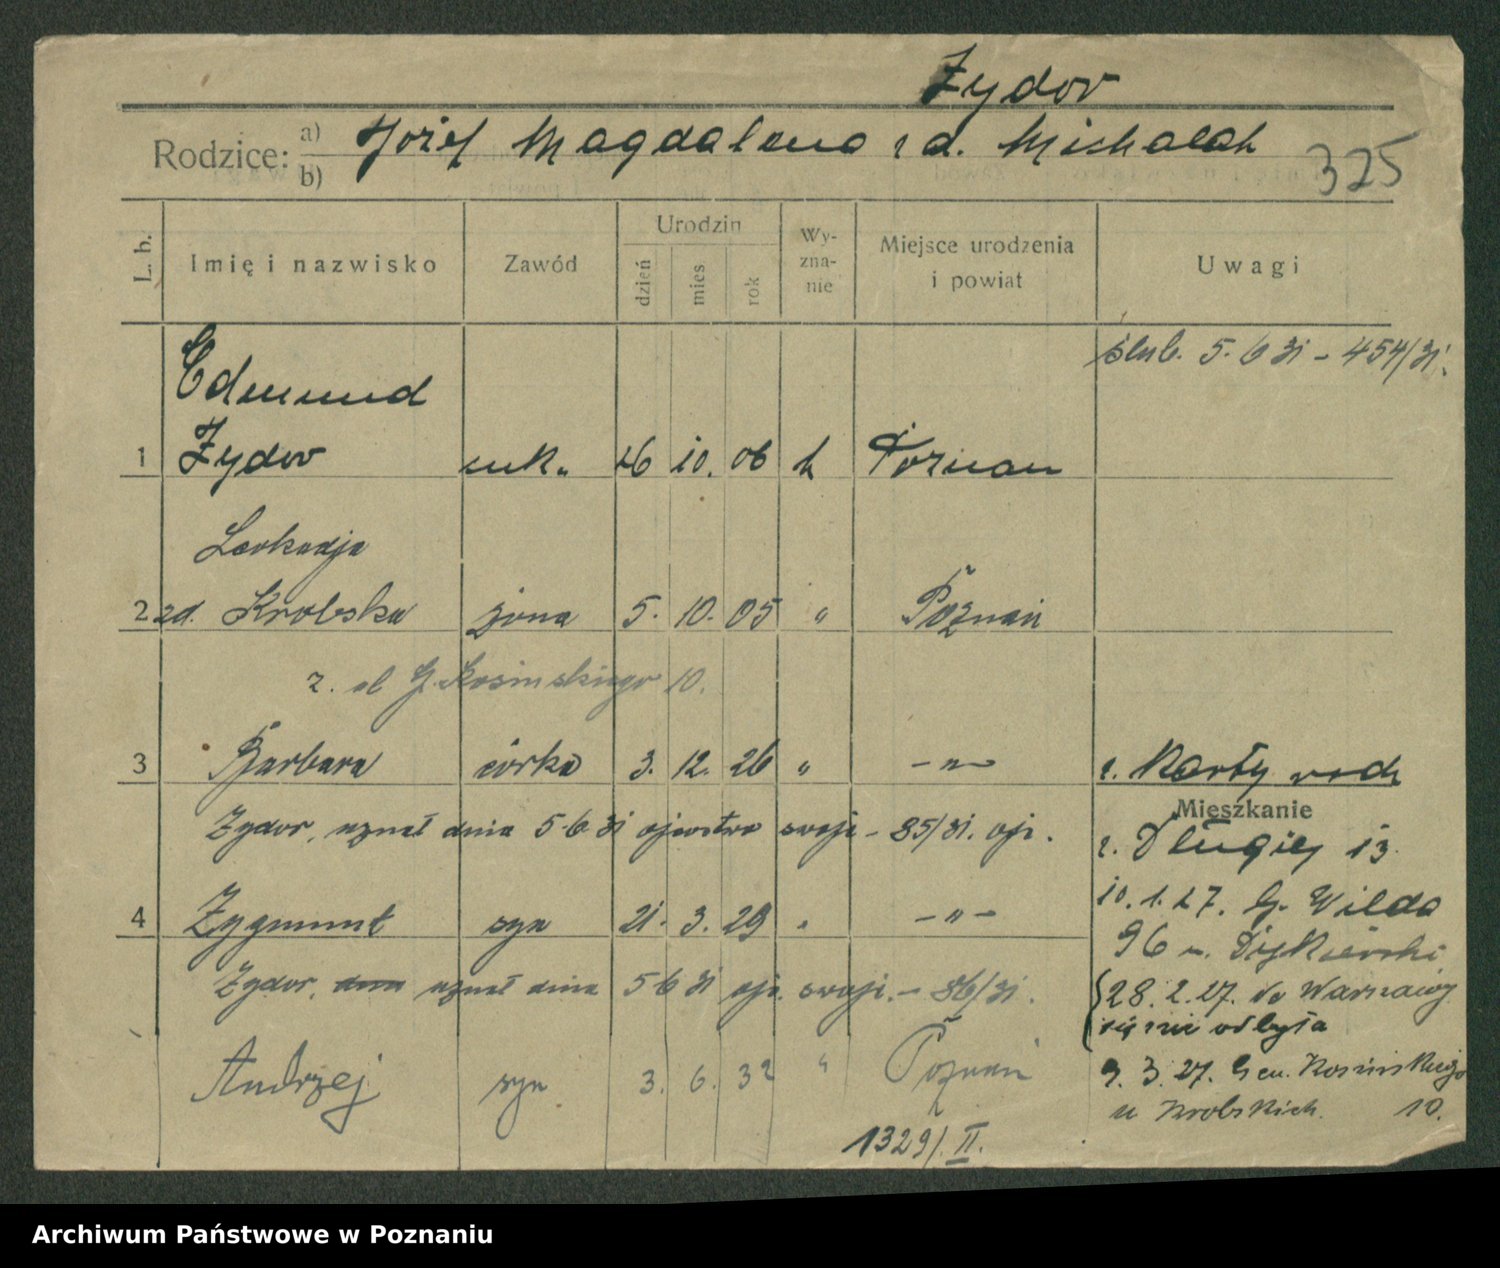 Żydor
Rodzice: a) Józef Magdalena z d. Michalak
b)
325
L. b.
Imię i nazwisko
Zawód
Urodzin
dzień
mies
rok
Wy-
zna-
nie
Miejsce urodzenia
i powiat
Uwagi
ślub. 5. 6 31 - 454/31.
Edmund
1 Żydor 10. 06 k Poznań
Leokadja
2 zd. Krobska żona 5. 10. 05 " Poznań
z. ul G. Kosinskiego 10.
3 Barbara córka 3. 12. 26 " -"-
z. Karty rodz
Żydor, uznał dnia 5.6 31 ojcostwo swoje - 85/31. ojc.
Mieszkanie
z. Długiej 13.
4 Zygmunt syn 21. 3. 29 " -"-
10. 1. 27. G. Wilda
96 u.
Żydor, dnia uznał dnia 5 6 31 ojc. swoje. - 86/31.
28. 2. 27. do Warszawy
się nie odbyła
Andrzej syn 3. 6. 32 " Poznań
9. 3. 27. Gen. Kosinskiego
u Krobskich. 10.
1329/. II.
Archiwum Państwowe w Poznaniu